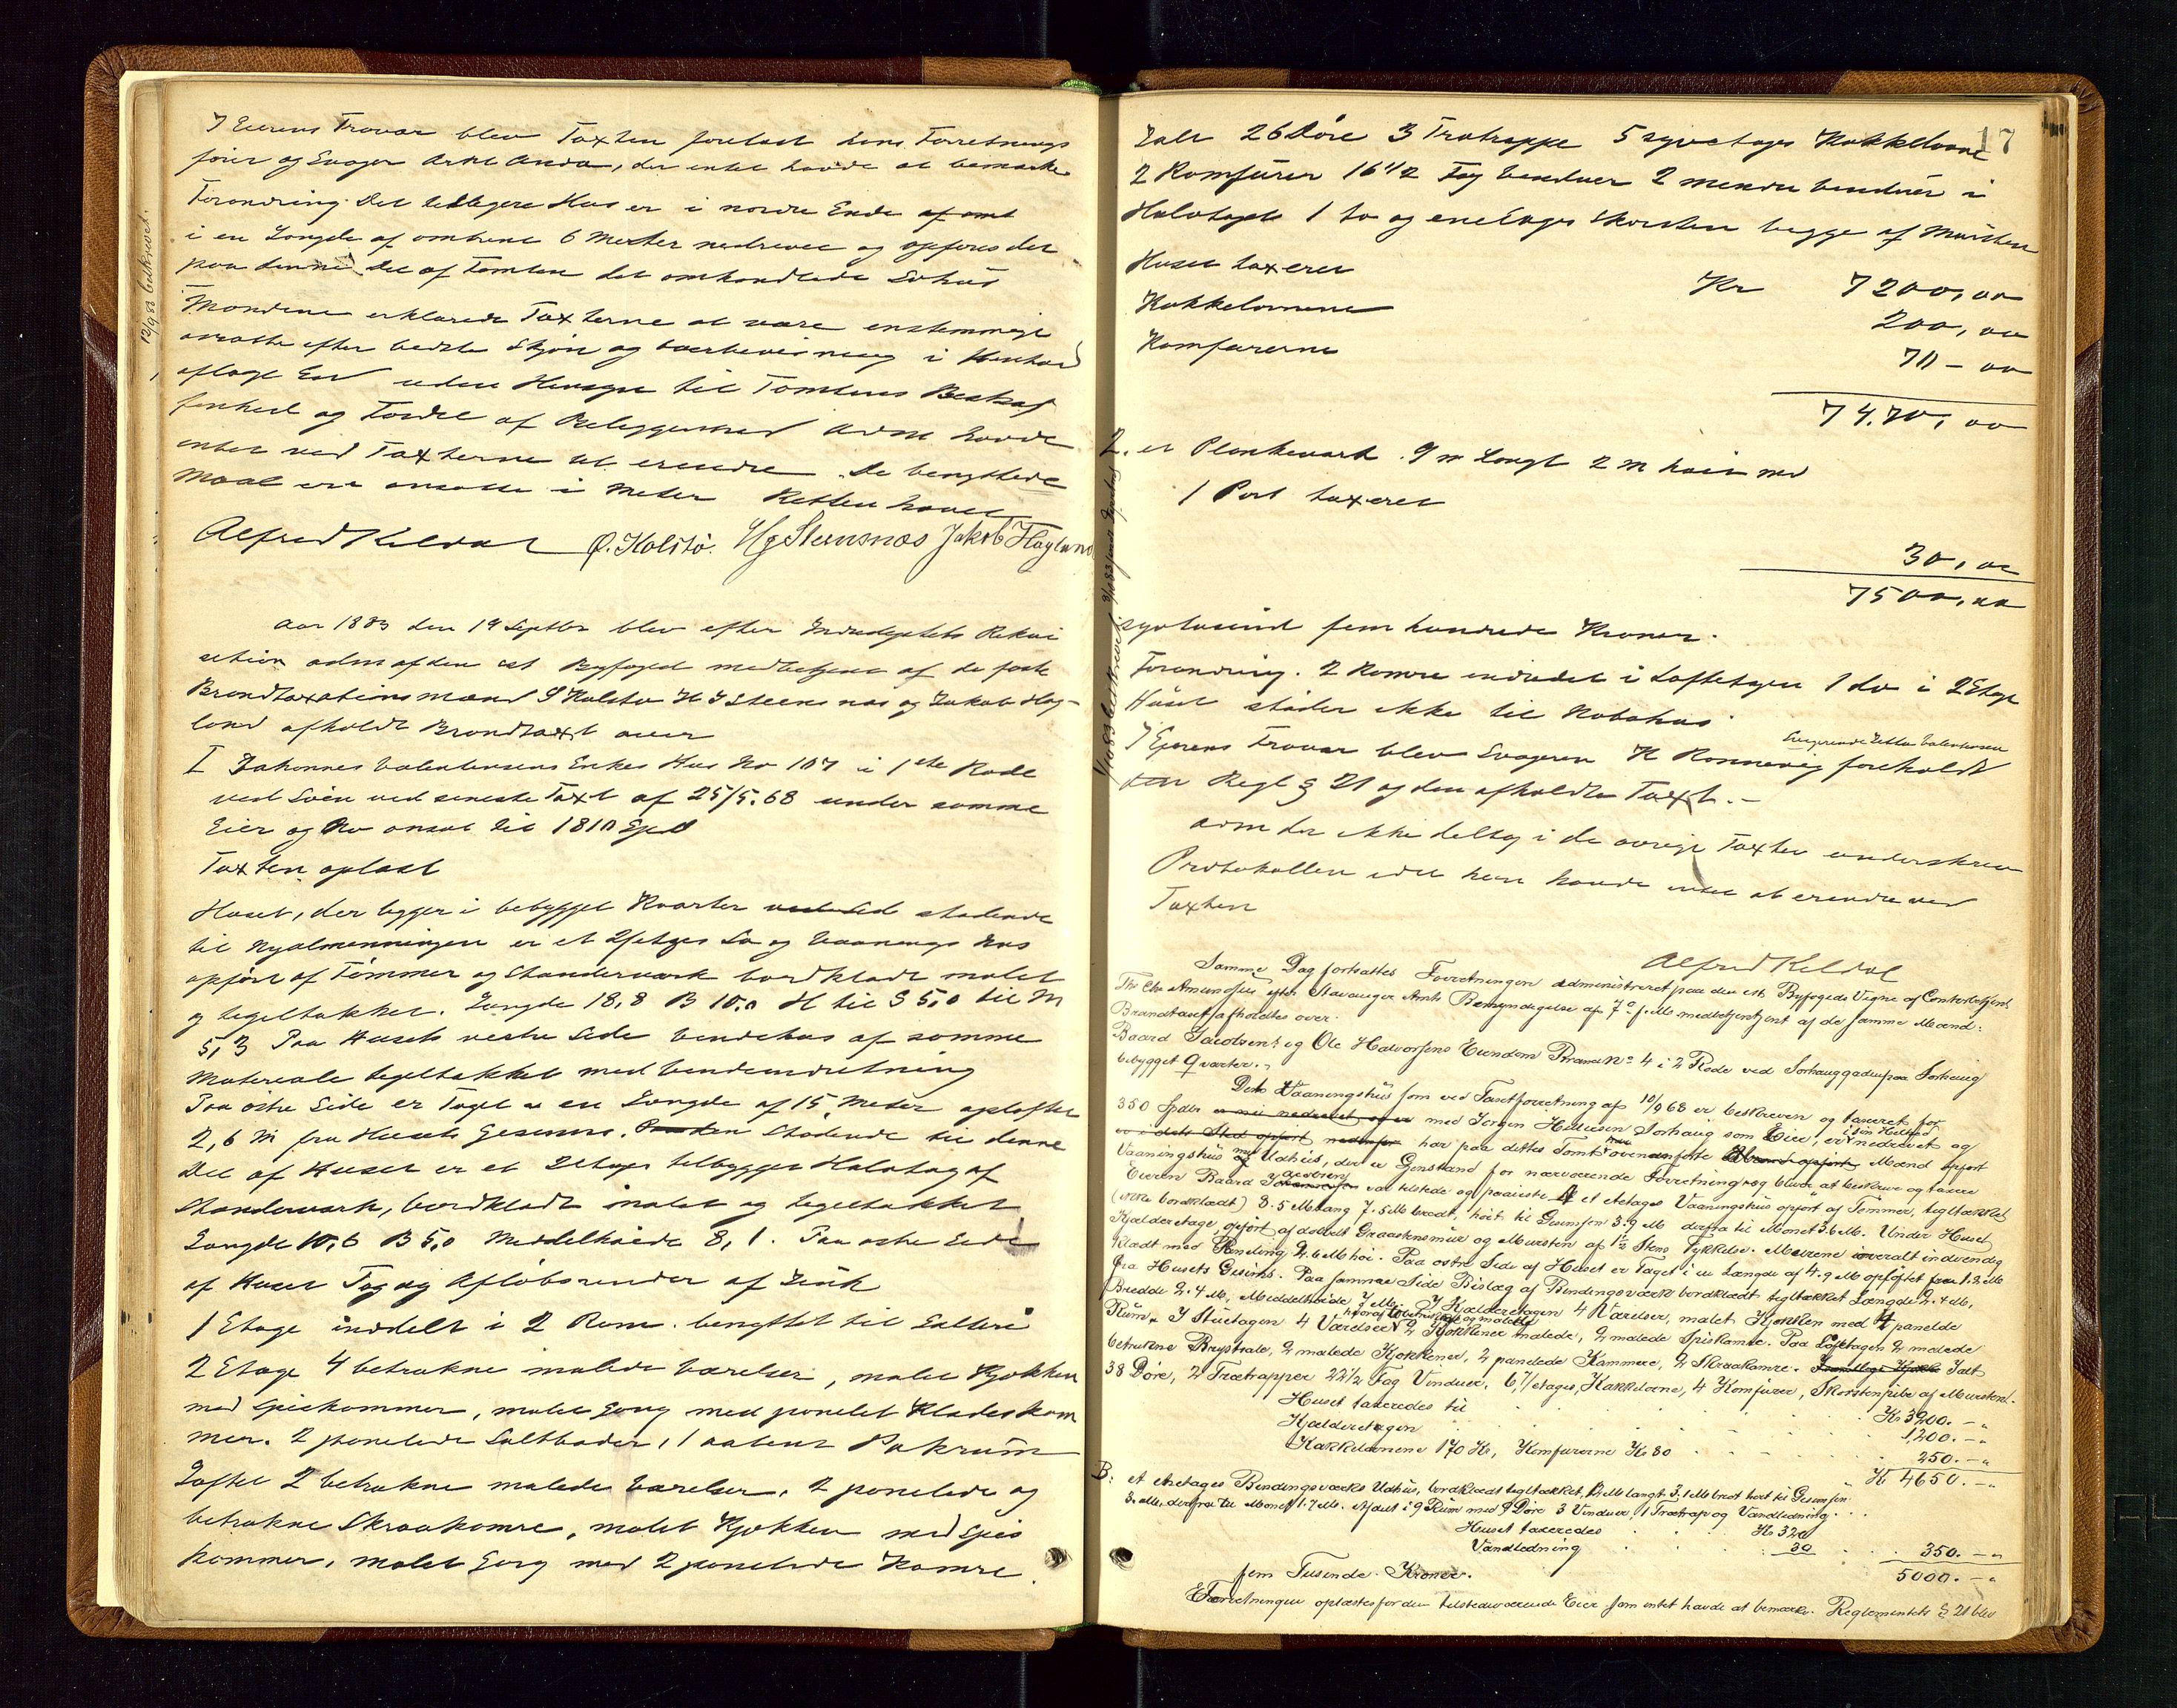 12/9 83 beskrevet.
I Eierens Fravær blev Taxten forelæst hans Forretnings
fører og Svoger Arne Anda, der intet havde at bemærke
Forandring. Det tidligere Hus er i nordre Ende af omt
i en Længde af omtrent 6 Meter nedrevet og opføres der
paa denne Del af Tomten det omhandlede Søhus
Mændene erklærede Taxterne at være enstemmigt
ansatte efter bedste Skjøn og Overbevisning i Henhold
aflagt Ed uden Hensyn til Tomtens Beskaf
fenhed og Fordel af Beliggenhed Adm havde
intet ved Taxterne at erindre. De benyttede
Maal ere ansatte i Meter Retten hævet
Alfred Keldal O. Holstø. HJ Steensnæs Jakob Hagland
Aar 1883 den 19 Septbr blev efter Indredeptets Rekvi
sition adm af den cst Byfoged med betjent af de faste
Brandtaxationsmænd S Holstø H J Steensnæs og Jakob Hag-
land afholdt Brandtaxt over
I Johannes Valentinsens Enkes Hus No 107 i 1ste Rode
ved Søen ved seneste Taxt af 25/5.68 under samme
Eier og No ansat til 1810 Spd
Taxten oplæst
Huset, der ligger i bebygget Kvarter stødende
til Nyalmenningen er et 2 etages Sø og Vaanings hus
opført af Tømmer og Standerværk bordklædt malet
og tegltækket. Længde 18,8 B 10,0 H til G 5,0 til M
5,3 Paa Husets vestre Side Vindehus af samme
Materiale tegltækket med Vindeindretning
Paa østre Side er Taget i en Længde af 15 Meter opløftet
2,6 M fra Husets Gesims. Stødende til denne
Del af Huset er et 2 etages tilbygget Halvtag af
Standerværk, bordklædt malet og tegltækket
Længde 10,6 B 5,0 Middelhøide 8,1. Paa østre Side
af Huset Tag og Afløbsrender af Zink
1 Etage inddelt i 2 Rum benyttet til Salteri
2 Etage 4 betrukne malede Værelser, malet Kjøkken
med Spiskammer, malet Gang med panelet Klædeskam
mer. 2 panelede Saltboder, 1 aabent Pakrum
Loftet 2 betrukne malede Værelser, 2 panelede og
betrukne Skraakamre, malet Kjøkken med Spis
kammer, malet Gang med 2 panelede Kamre
17
Ialt 26 Døre 3 Trætrappe 5 syvetages Kakkelovne
2 Komfurer 16 1/2 Fag Vinduer 2 mindre Vinduer i
Halvtaget 1 to og enetages Skorsten begge af Mursten
Huset taxeret Kr 7200,00
Kakkelovnene 200,00
Komfurerne 70-00
7470,00
2. et Plankeværk 9 m langt 2 m høit med
1 Port taxeret
30,00
7500,00
syvtusind fem hundrede Kroner.
Forandring. 2 Kamre indredet i Loftetagen 1 do i 2 Etage
Huset støder ikke til Nabohus
I Eierens Fravær blev Svogeren H Rønnevig foreholdt
den Regl § 21 og den afholdte Taxt.-
Adm der ikke deltog i de øvrige Taxter underskrev
Protokollen idet han havde intet at erindre ved
Taxten
Alfred Keldal
Samme Dag fortsattes Forretningen administreret paa den cst. Byfogeds Vegne af Contorbetjent
Ths Chr Amundsen efter Stavanger Amts Bemyndigelse af 7de f. M. medbetjent af de samme Mænd:
Brandtaxt afholdtes over.
Baard Jacobsens og Ole Halvorsens Eiendom Brand No 4 i 2 Rode ved Sørhauggaden paa Sørhaug
bebygget Qvarter.
Det Vaaningshus som ved Taxtforretning af 10/9 68 er beskreven og taxeret for
350 Spdlr er nu nedrevet og er med Jørgen Hellesen Sørhaug som Eier, er i sin Helhed nedrevet og
er i dets Sted opført har paa dettes Tomt nu ovenanførte Mænd opført
Vaaningshus med Udhus, der er Gjenstand for nærværende Forretning og bliver at beskrive og taxere
Eieren Baard Jacobsen var tilstede og paaviste A et etetages Vaaningshus opført af Tømmer, tegltækket
(ikke bordklædt) 8.5 M lang 7.5 M bredt, høit til Gesimsen 3.9 M derfra til Mønet 3.6 M. Under Huset
Kjælderetage, opført af dobbelt Graastensmur og Mursten af 1 1/2 Stens Tykkelse. Murene overalt indvendig
klædt med Panding 2.6 M høi. Paa østre Side af Huset er Taget i en Længde af 4.9 M opløftet 1.8 M
fra Husets Gesims. Paa samme Side Bislag af Bindingsværk bordklædt tegltækket Længde 2.4 M,
Bredde 2.4 M, Middelhøide 7 M. I Kjælderetagen 4 Værelser, malet Kjøkken med 4 panelde
Rum. I Stuetagen 4 Værelser hvoraf to betrukket og malede 2 Kjøkkener malede, 2 malede Spiskamre. Paa Loftetagen 2 malede
betrukne Brystvale, 2 malede Kjøkkener, 2 panelede Kammere, 2 Skraakamre. Ialt
38 Døre, 2 Trætrapper 22 1/2 Fag Vinduer, 6 7/etages, Kakkelovne, 4 Komfurer, Skorstenspibe af Mursten.
Huset taxeredes til Kr 3200.-"
Kjælderetagen 1200.-"
Kakkelovnene 170 Kr, Komfurerne Kr 80 250.-"
Kr 4650.-"
B: et etetages Bindingsværks Udhus, bordklædt tegltækket, 12 M langt 3.1 M bredt høit til Gesimsen
3. M, derfra til Mønet 1.7 M. Afdelt i 9 Rum med 9 Døre 3 Vinduer 1 Trætrap og Vandledning.
Huset taxeredes Kr 320
Vandledning 30 350.-"
5000.-"
fem Tusinde Kroner.
Forretningen oplæstes for den tilstedeværende Eier som intet havde at bemærke. Reglementets § 21 blev